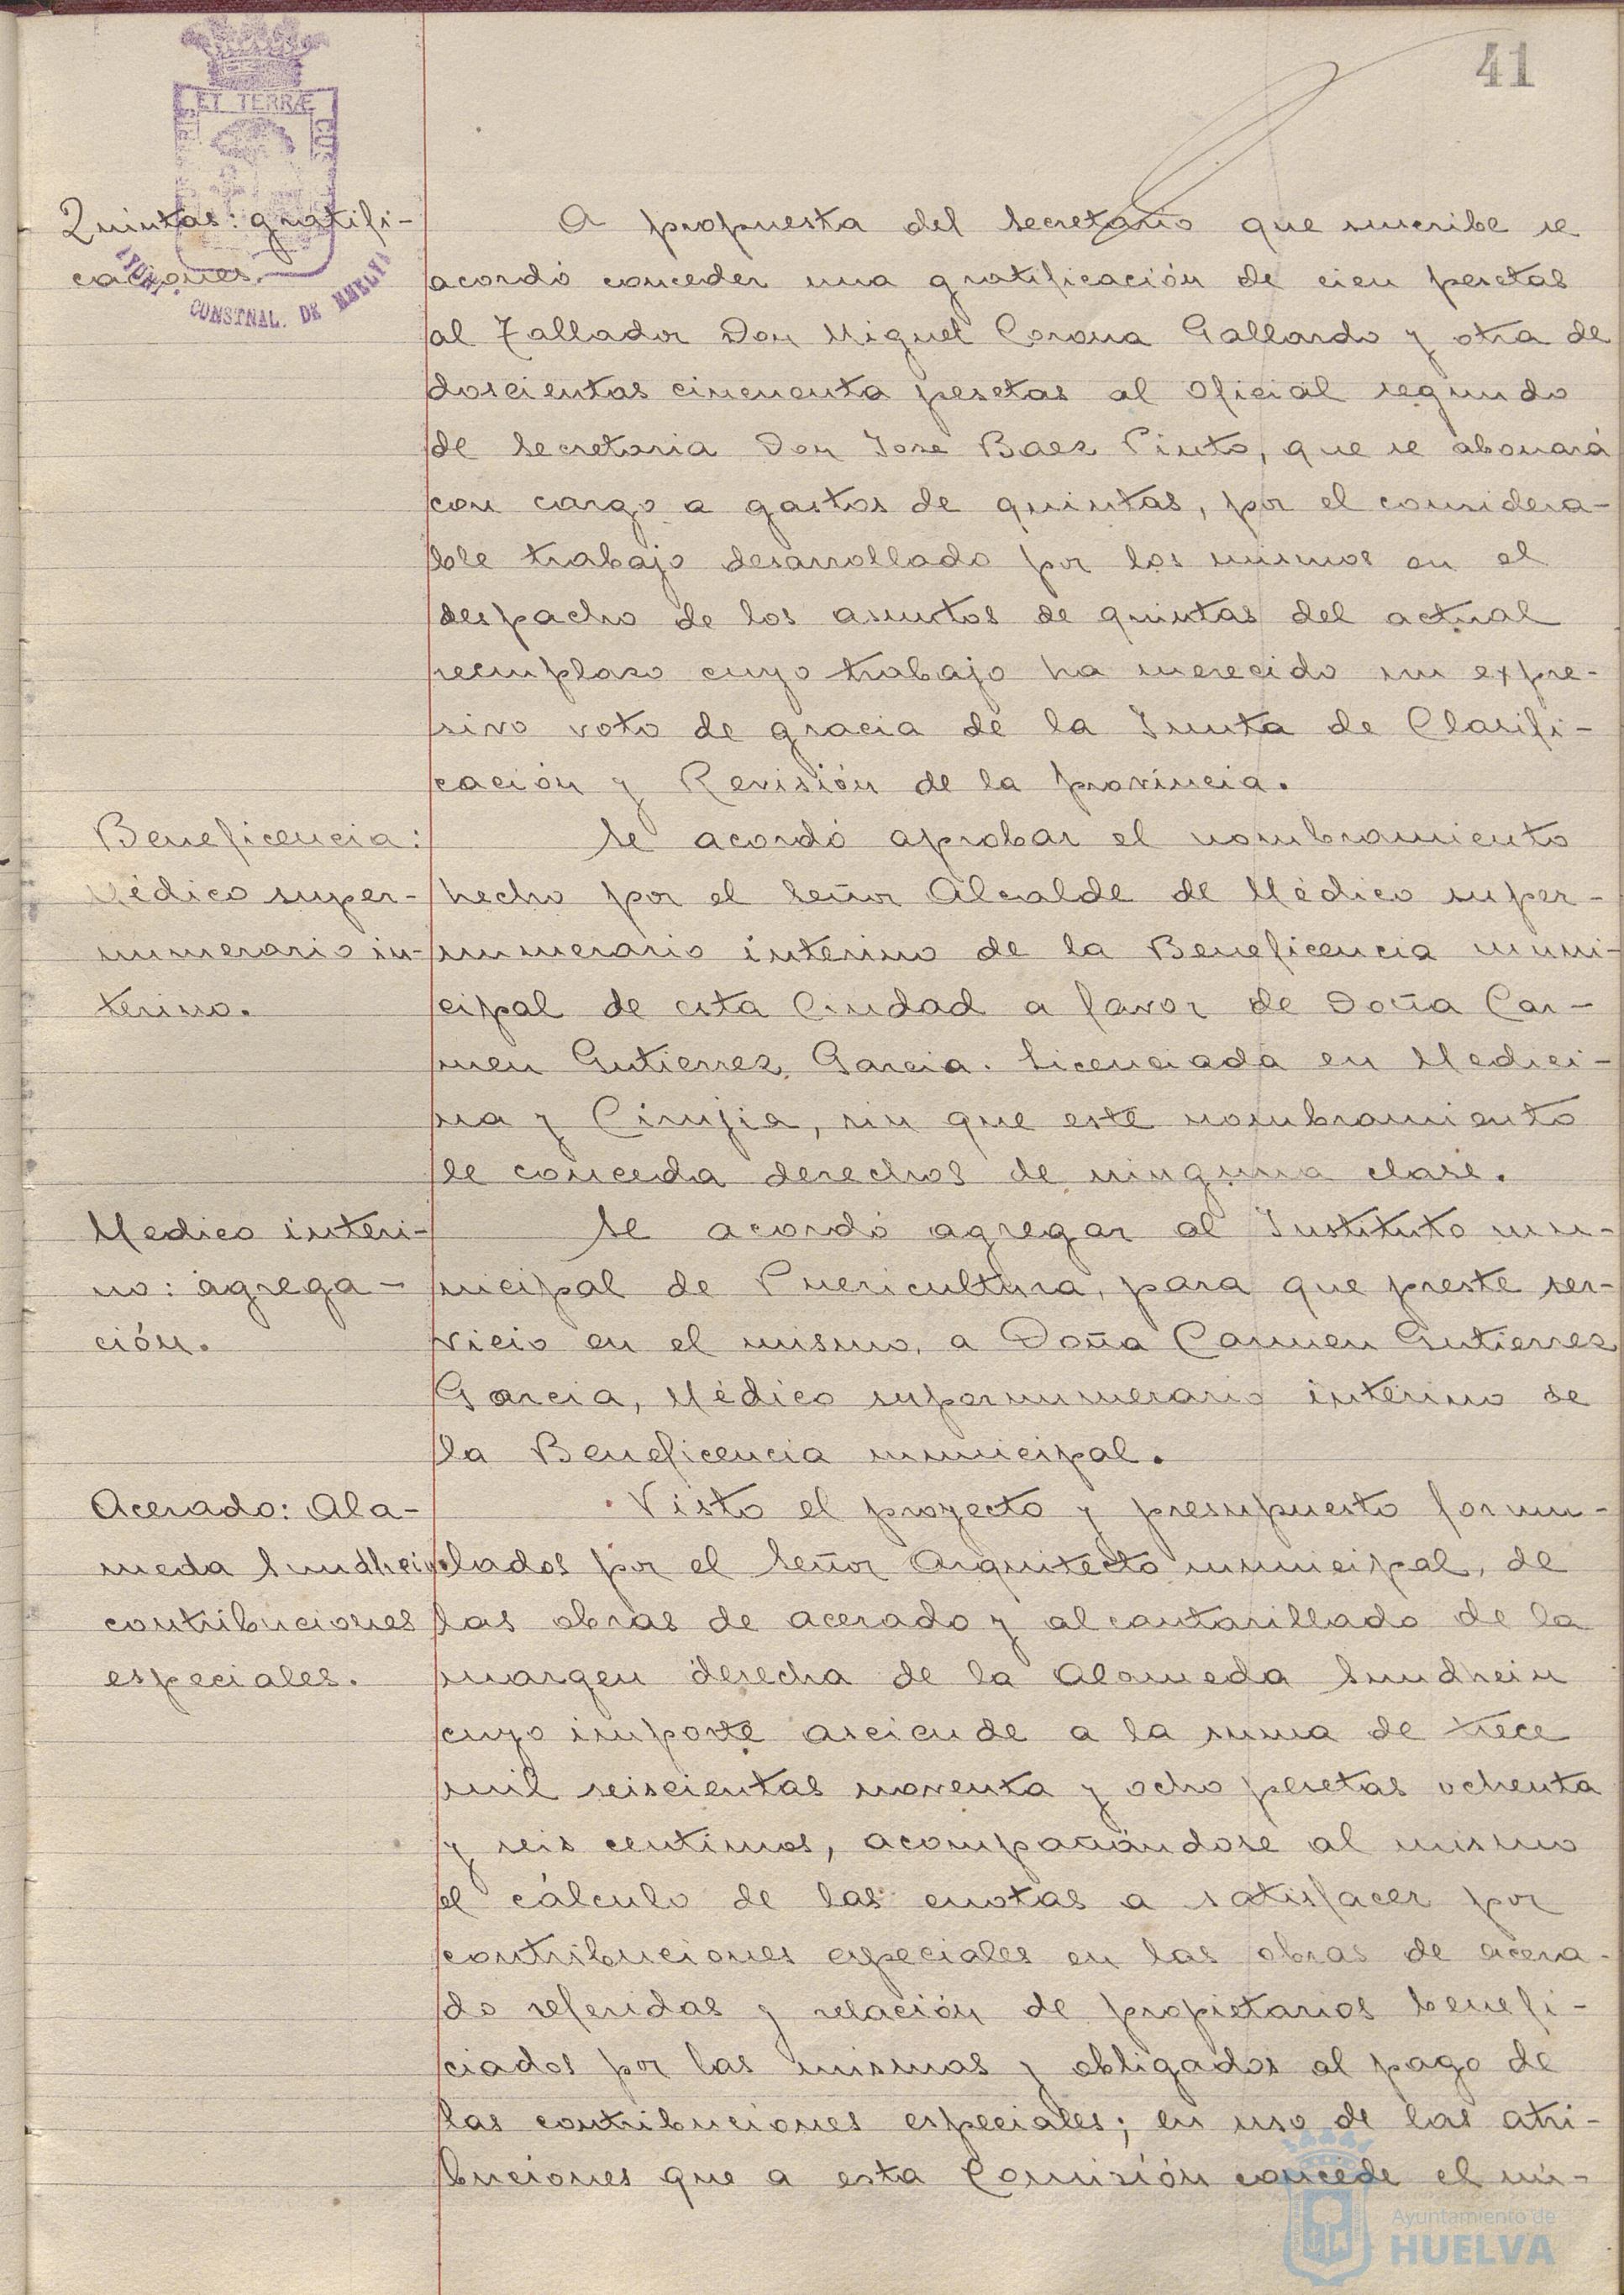 41
ET TERRÆ
CUS
AYUNT. CONSTNAL. DE HUELVA
Quintas: gratifi-
caciones.
A propuesta del Secretario que suscribe se
acordó conceder una gratificación de cien pesetas
al Tallador Don Miguel Corona Gallardo y otra de
doscientas cincuenta pesetas al Oficial segundo
de Secretaria Don Jose Baez Pinto, que se abonará
con cargo a gastos de quintas, por el considera-
ble trabajo desarrollado por los mismos en el
despacho de los asuntos de quintas del actual
reemplazo cuyo trabajo ha merecido un expre-
sivo voto de gracia de la Junta de Clasifi-
cación y Revisión de la provincia.
Beneficencia:
Médico super-
numerario in-
terino.
Se acordó aprobar el nombramiento
hecho por el Señor Alcalde de Médico super-
numerario interino de la Beneficencia muni-
cipal de esta Ciudad a favor de Doña Car-
men Gutierrez Garcia. Licenciada en Medici-
na y Cirujia, sin que este nombramiento
le conceda derechos de ninguna clase.
Medico interi-
no: agrega-
ción.
Se acordó agregar al Instituto mu-
nicipal de Puericultura, para que preste ser-
vicio en el mismo, a Doña Carmen Gutierrez
Garcia, Médico supernumerario interino de
la Beneficencia municipal.
Acerado: Ala-
meda Sundhein
contribuciones
especiales.
Visto el proyecto y presupuesto formu-
lados por el Señor Arquitecto municipal, de
las obras de acerado y alcantarillado de la
margen derecha de la Alameda Sundhein
cuyo importe asciende a la suma de trece
mil seiscientas noventa y ocho pesetas ochenta
y seis centimos, acompañándose al mismo
el cálculo de las cuotas a satisfacer por
contribuciones especiales en las obras de acera-
do referidas y relación de propietarios benefi-
ciados por las mismas y obligados al pago de
las contribuciones especiales; en uso de las atri-
buciones que a esta Comisión concede el nú-
Ayuntamiento de
HUELVA